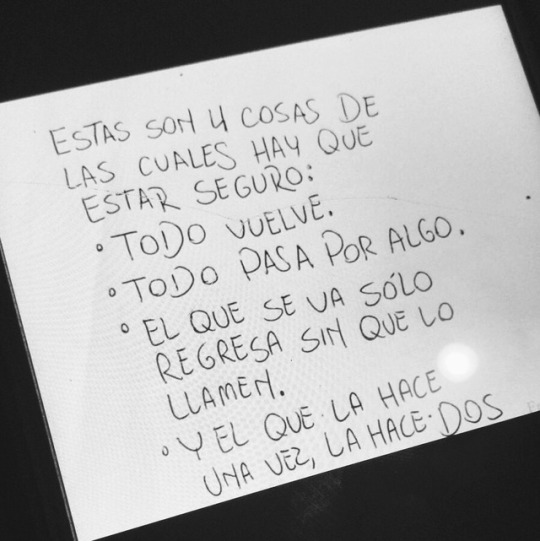 ESTAS SON 4 COSAS DE
LAS CUALES HAY QUE
ESTAR SEGURO:
• TODO VUELVE.
• TODO PASA POR ALGO.
• EL QUE SE VA SÓLO
REGRESA SIN QUE LO
LLAMEN.
• Y EL QUE LA HACE
UNA VEZ, LA HACE DOS